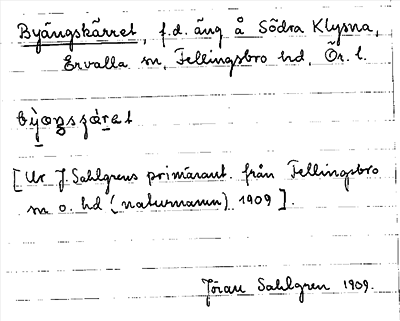 Byängskärret, f.d. äng å Södra Klysna,
Ervalla sn, Fellingsbro hd, Ör. l.
[Ur J. Sahlgrens primärant. från Fellingsbro
sn o. hd (naturnamn) 1909].
Jöran Sahlgren 1909.